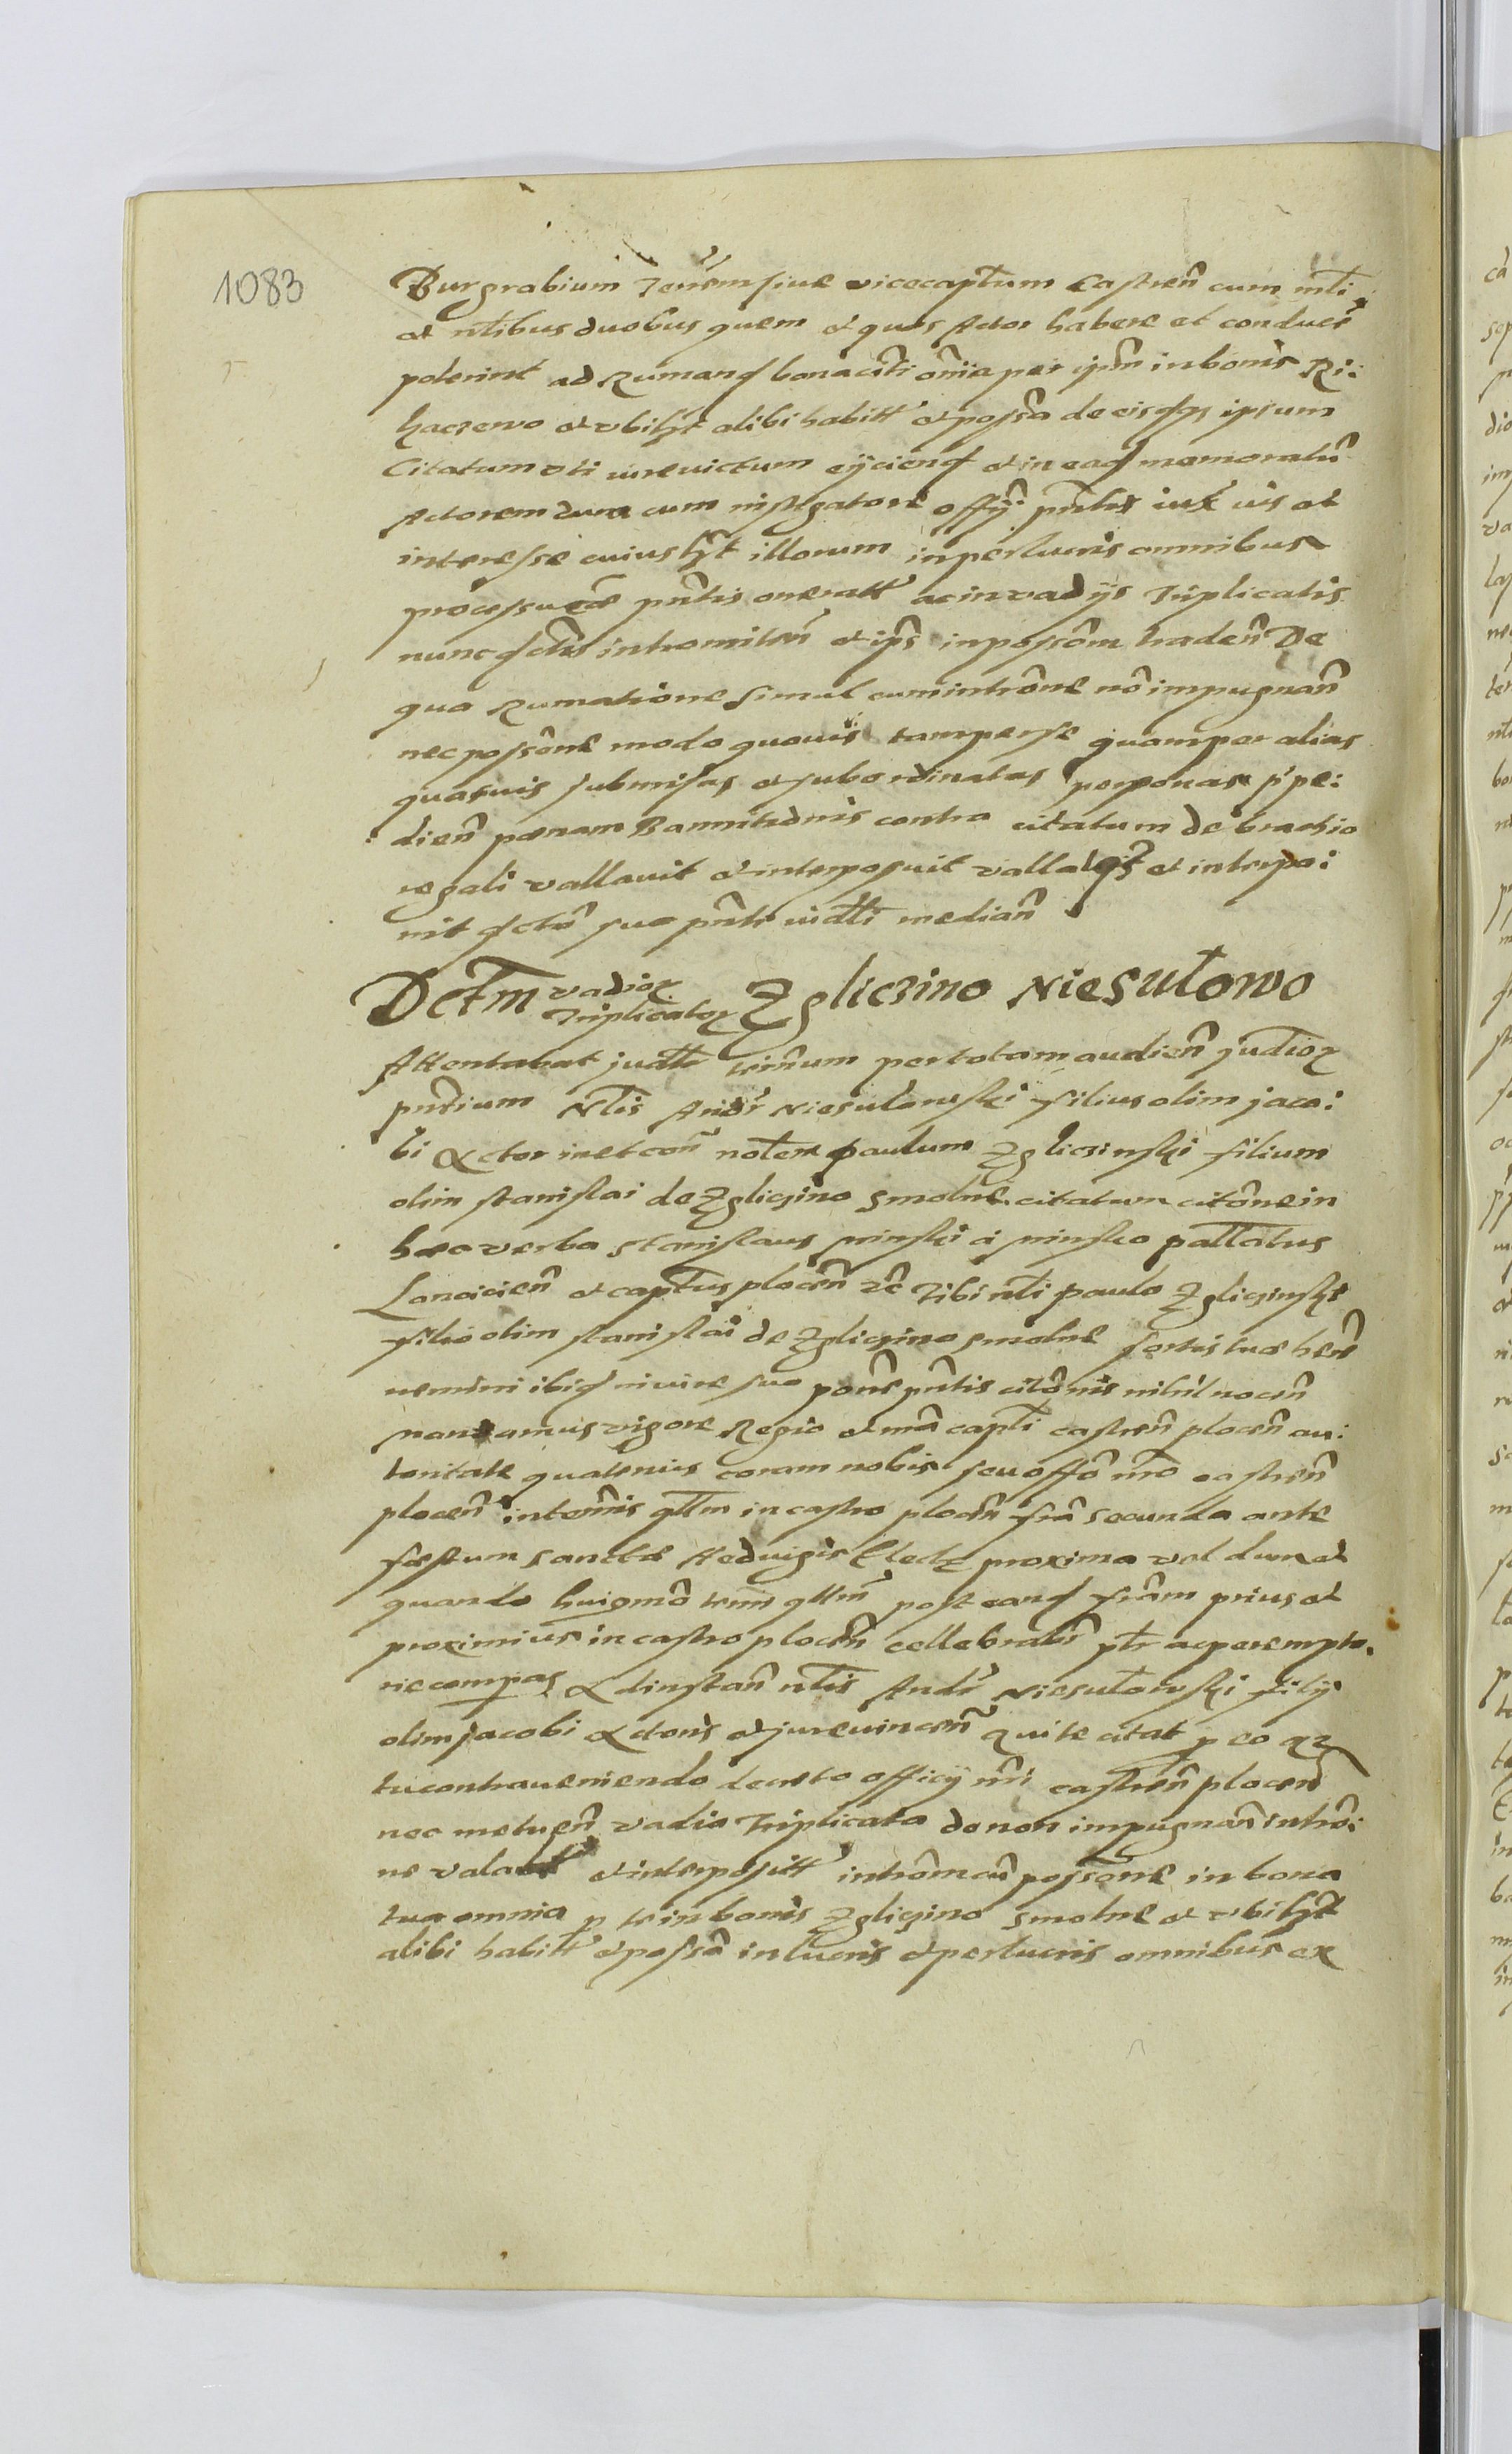 1083
Burgrabium Terrem siue vicecaptum Castren̄ cum mlti
et nlibus duobus quem et quos Actor habere et conducē
poterint ad Rumand bona citti omīa per ipm̄ in bonis Ri:
haczewo et vbilt alibi habitt et possa de eisqz ipsum
Citatum vti iurevictum eijciend et in ead memoratū
Actorem una cum instigatore offij pntis iux ius et
interesse cuiuslt illorum in perlucris omnibus
processu pntis oneratt ac in vadijs Triplicatis
nunc intromitten̄ et ips in possōm traden̄ De
qua Rumatione simul cum intrōne nō impugnan̄
nec possōne modo quouis tam per se quam per alias
quasuis submissas et subordinatas personas p̄pe:
dien̄ pœnam Bannitionis contra citatum de brachio
regali vallauit et interposuit vallatqz et interpo:
nit dctō suo pnti iudli median̄
Dctm vadior Triplicator Zgliczino Niesułowo
Attentauat judli terminum per totam audien̄ judior
pntium Nlis Andr̄ Niesułowski filius olim jaco:
bi Actor in et con̄ nolem paulum Zgliczinski filium
olim stanislai de Zgliczino Smolne citatum citōne in
hæc verba Stanislaus minski à minsko pallatus
Lancicien̄ et captus plocen̄ zc Tibi nli paulo Zgliczinski
filio olim stanislai de Zgliczino smolne sortis tuæ heren̄
nemini ibid in iure suo pōne pntis citōnis nihil nocen̄
mandamus vigore Regio et mā capti castren̄ plocen̄ au:
toritate quatenus coram nobis seu offō nro castren̄
plocen̄ in termis qllm in castro plocen̄ fra secunda ante
fæstum Sanctæ Heduigis Elede proxima vel dum et
quando huigmō termi qllm̄ post eand frām prius et
proximius in castro plocen̄ cellebrabr ptr ac perempto.
rie compas Ad instan̄ nlis Andr̄ Niesułowski filij
olim jacobi Actoris et jurevincen̄ qui te citat p eo qz
tu contraueniendo decreto officij nri castren̄ plocen̄
nec metuen̄ vadia Triplicata de non impugnan̄ intrō:
ne et interpositt intrōm cū possōne in bona
tua omnia p te in bonis Zgliczino Smolne et vbilt
alibi habitt et possā in lucris et perlucris omnibus ex